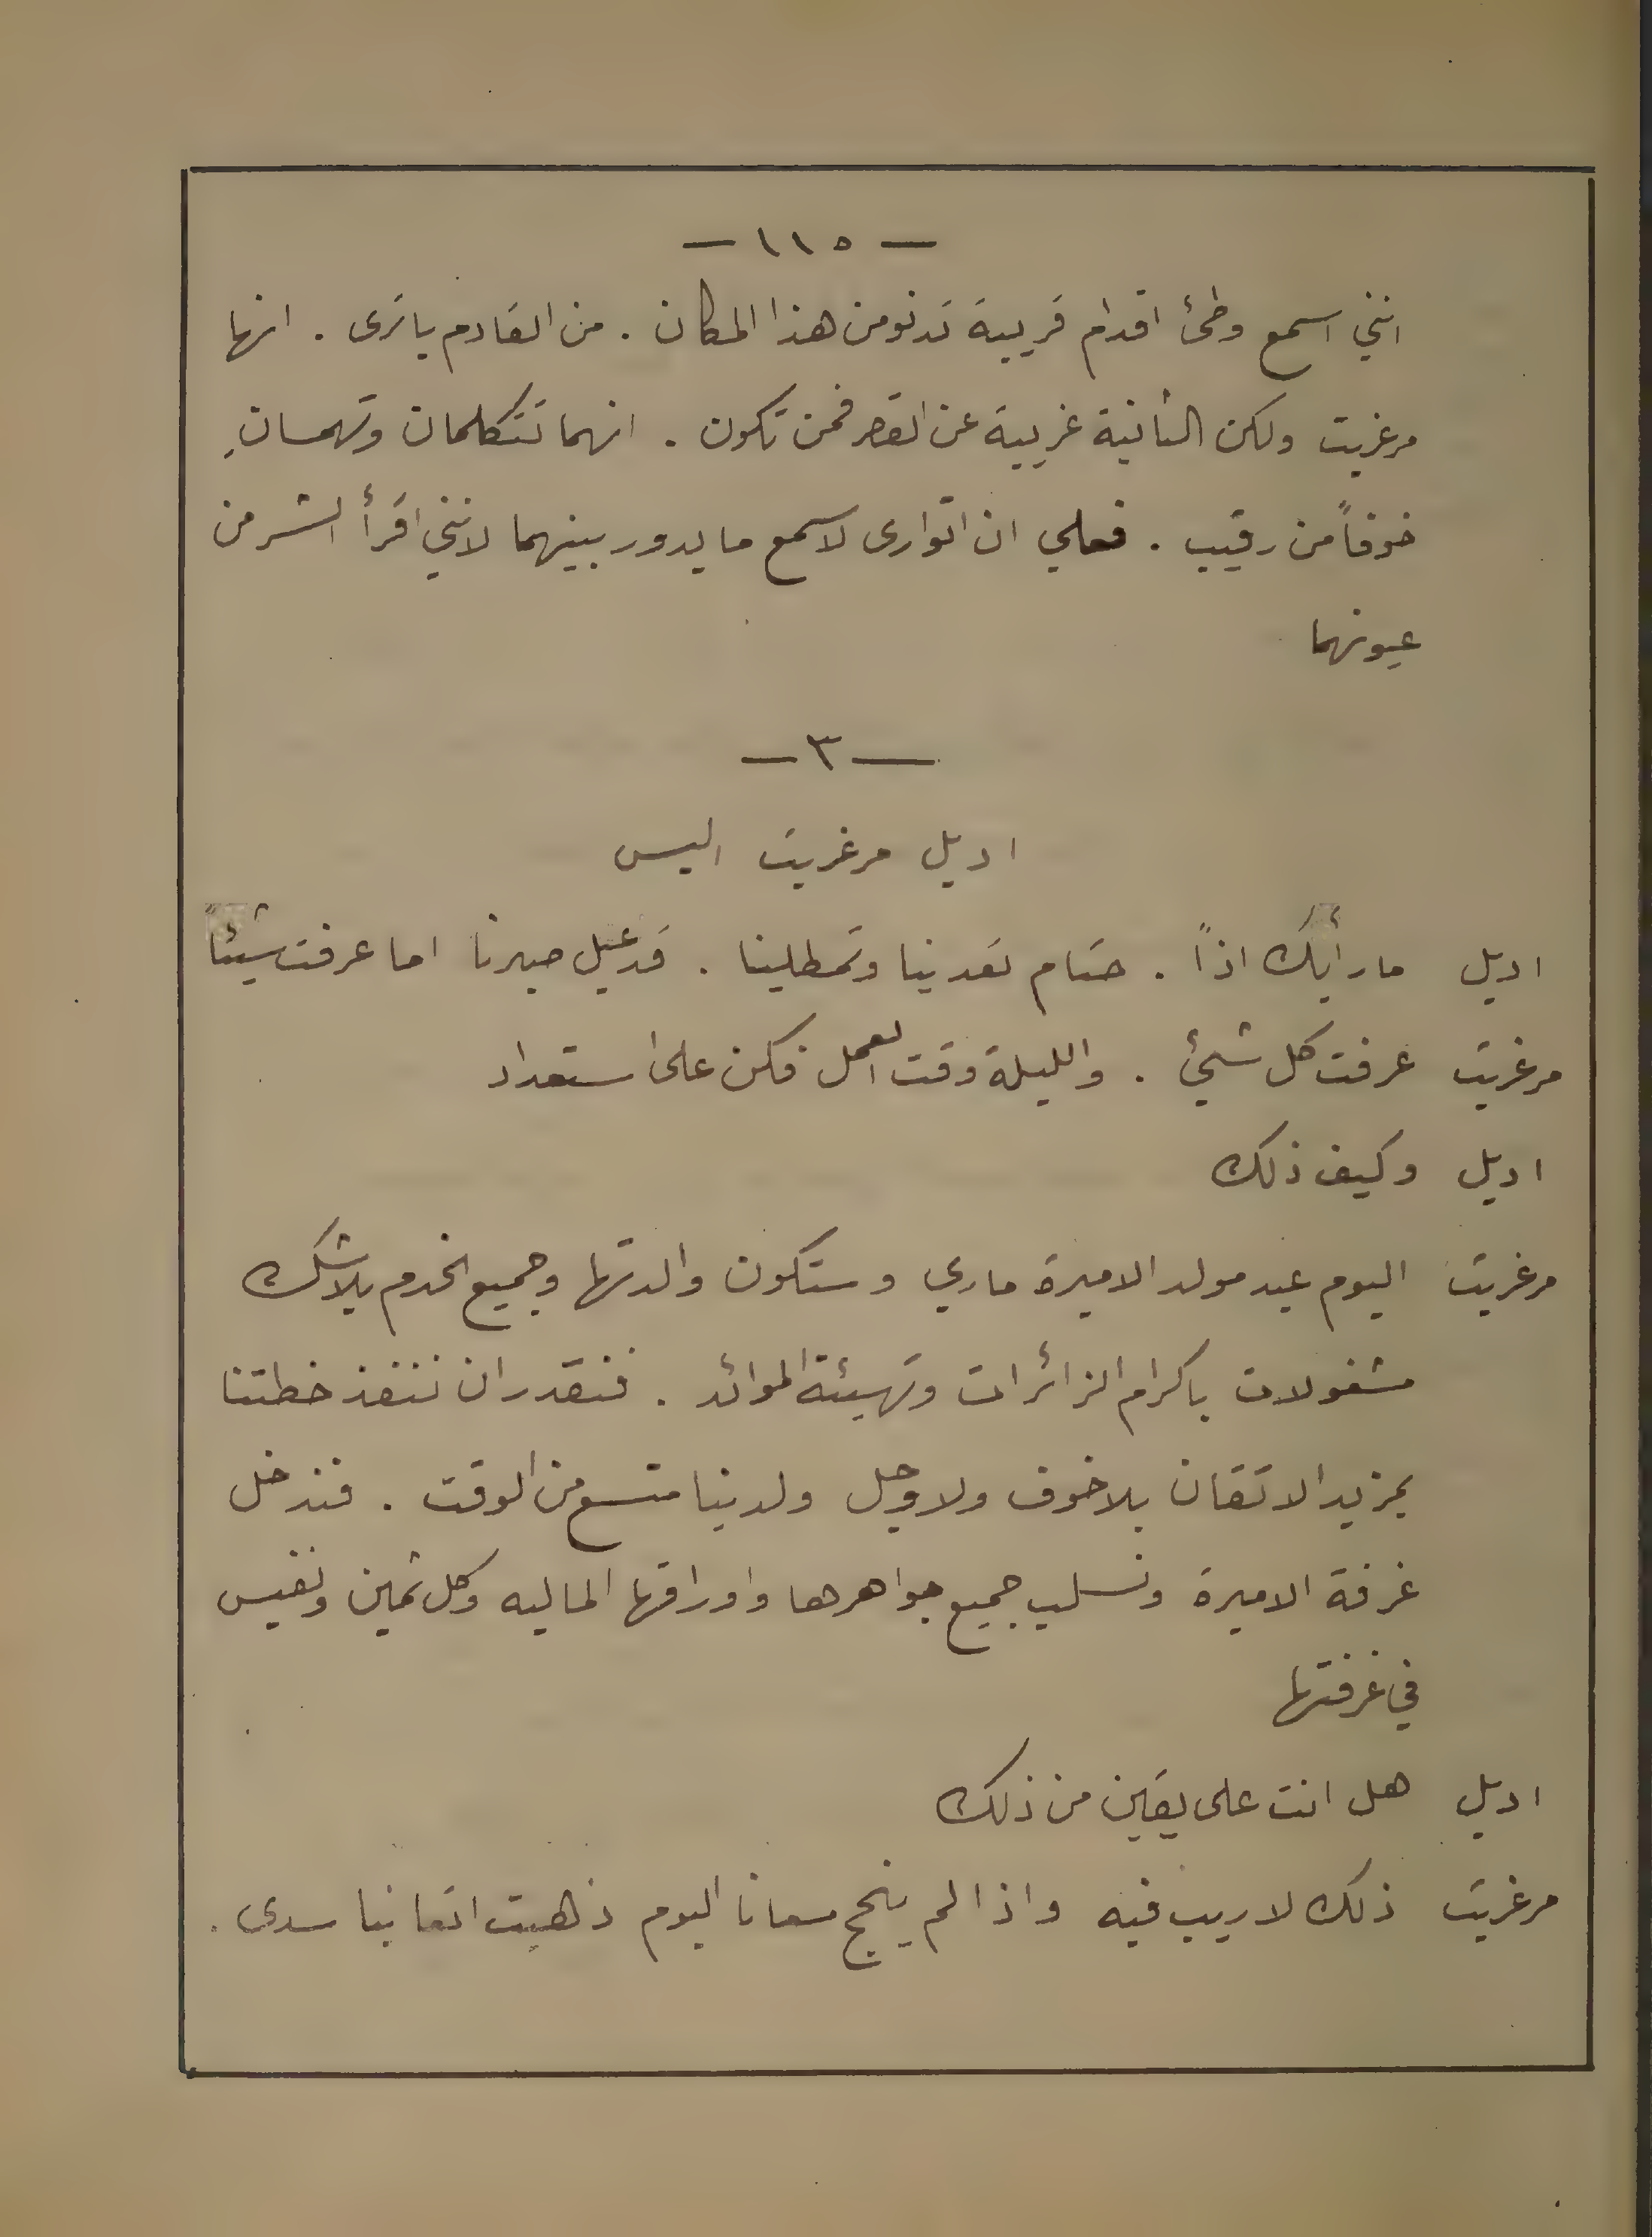 — ١١٥ —
انني اسمع وطئ اقدام قريبة تدنو من هذا المكان . من القادم يا ترى . انها
مرغريت ولكن الثانية غريبة عن القصر فمن تكون . انهما تتكلمان وتهمسانِ
خوفاً من رقيب . فعلي ان اتوارى لاسمع ما يدور بينهما لانني اقرأ الشر من
عيونهما
— ٣ —
اديل مرغريت اليس
اديل ما رأيك اذاً . حتام تعدينا وتمطلينا . قد عيل صبرنا اما عرفت شيئاً
مرغريت عرفت كل شيئ . والليلة وقت العمل فكن على استعداد
اديل وكيف ذلك
مرغريت اليوم عيد مولد الاميرة ماري وستكون والدتها وجميع الخدم بلا شك
مشغولات باكرام الزائرات وتهيئة الموائد . فنقدر ان ننفذ خطتنا
بمزيد الاتقان بلا خوف ولا وجل ولدينا متسع من الوقت . فندخل
غرفة الاميرة ونسلب جميع جواهرها واوراقها الماليه وكل ثمين ونفيس
في غرفتها
اديل هل انت على يقين من ذلك
مرغريت ذلك لا ريب فيه واذا لم ينجح مسعانا اليوم ذهبت اتعابنا سدى .